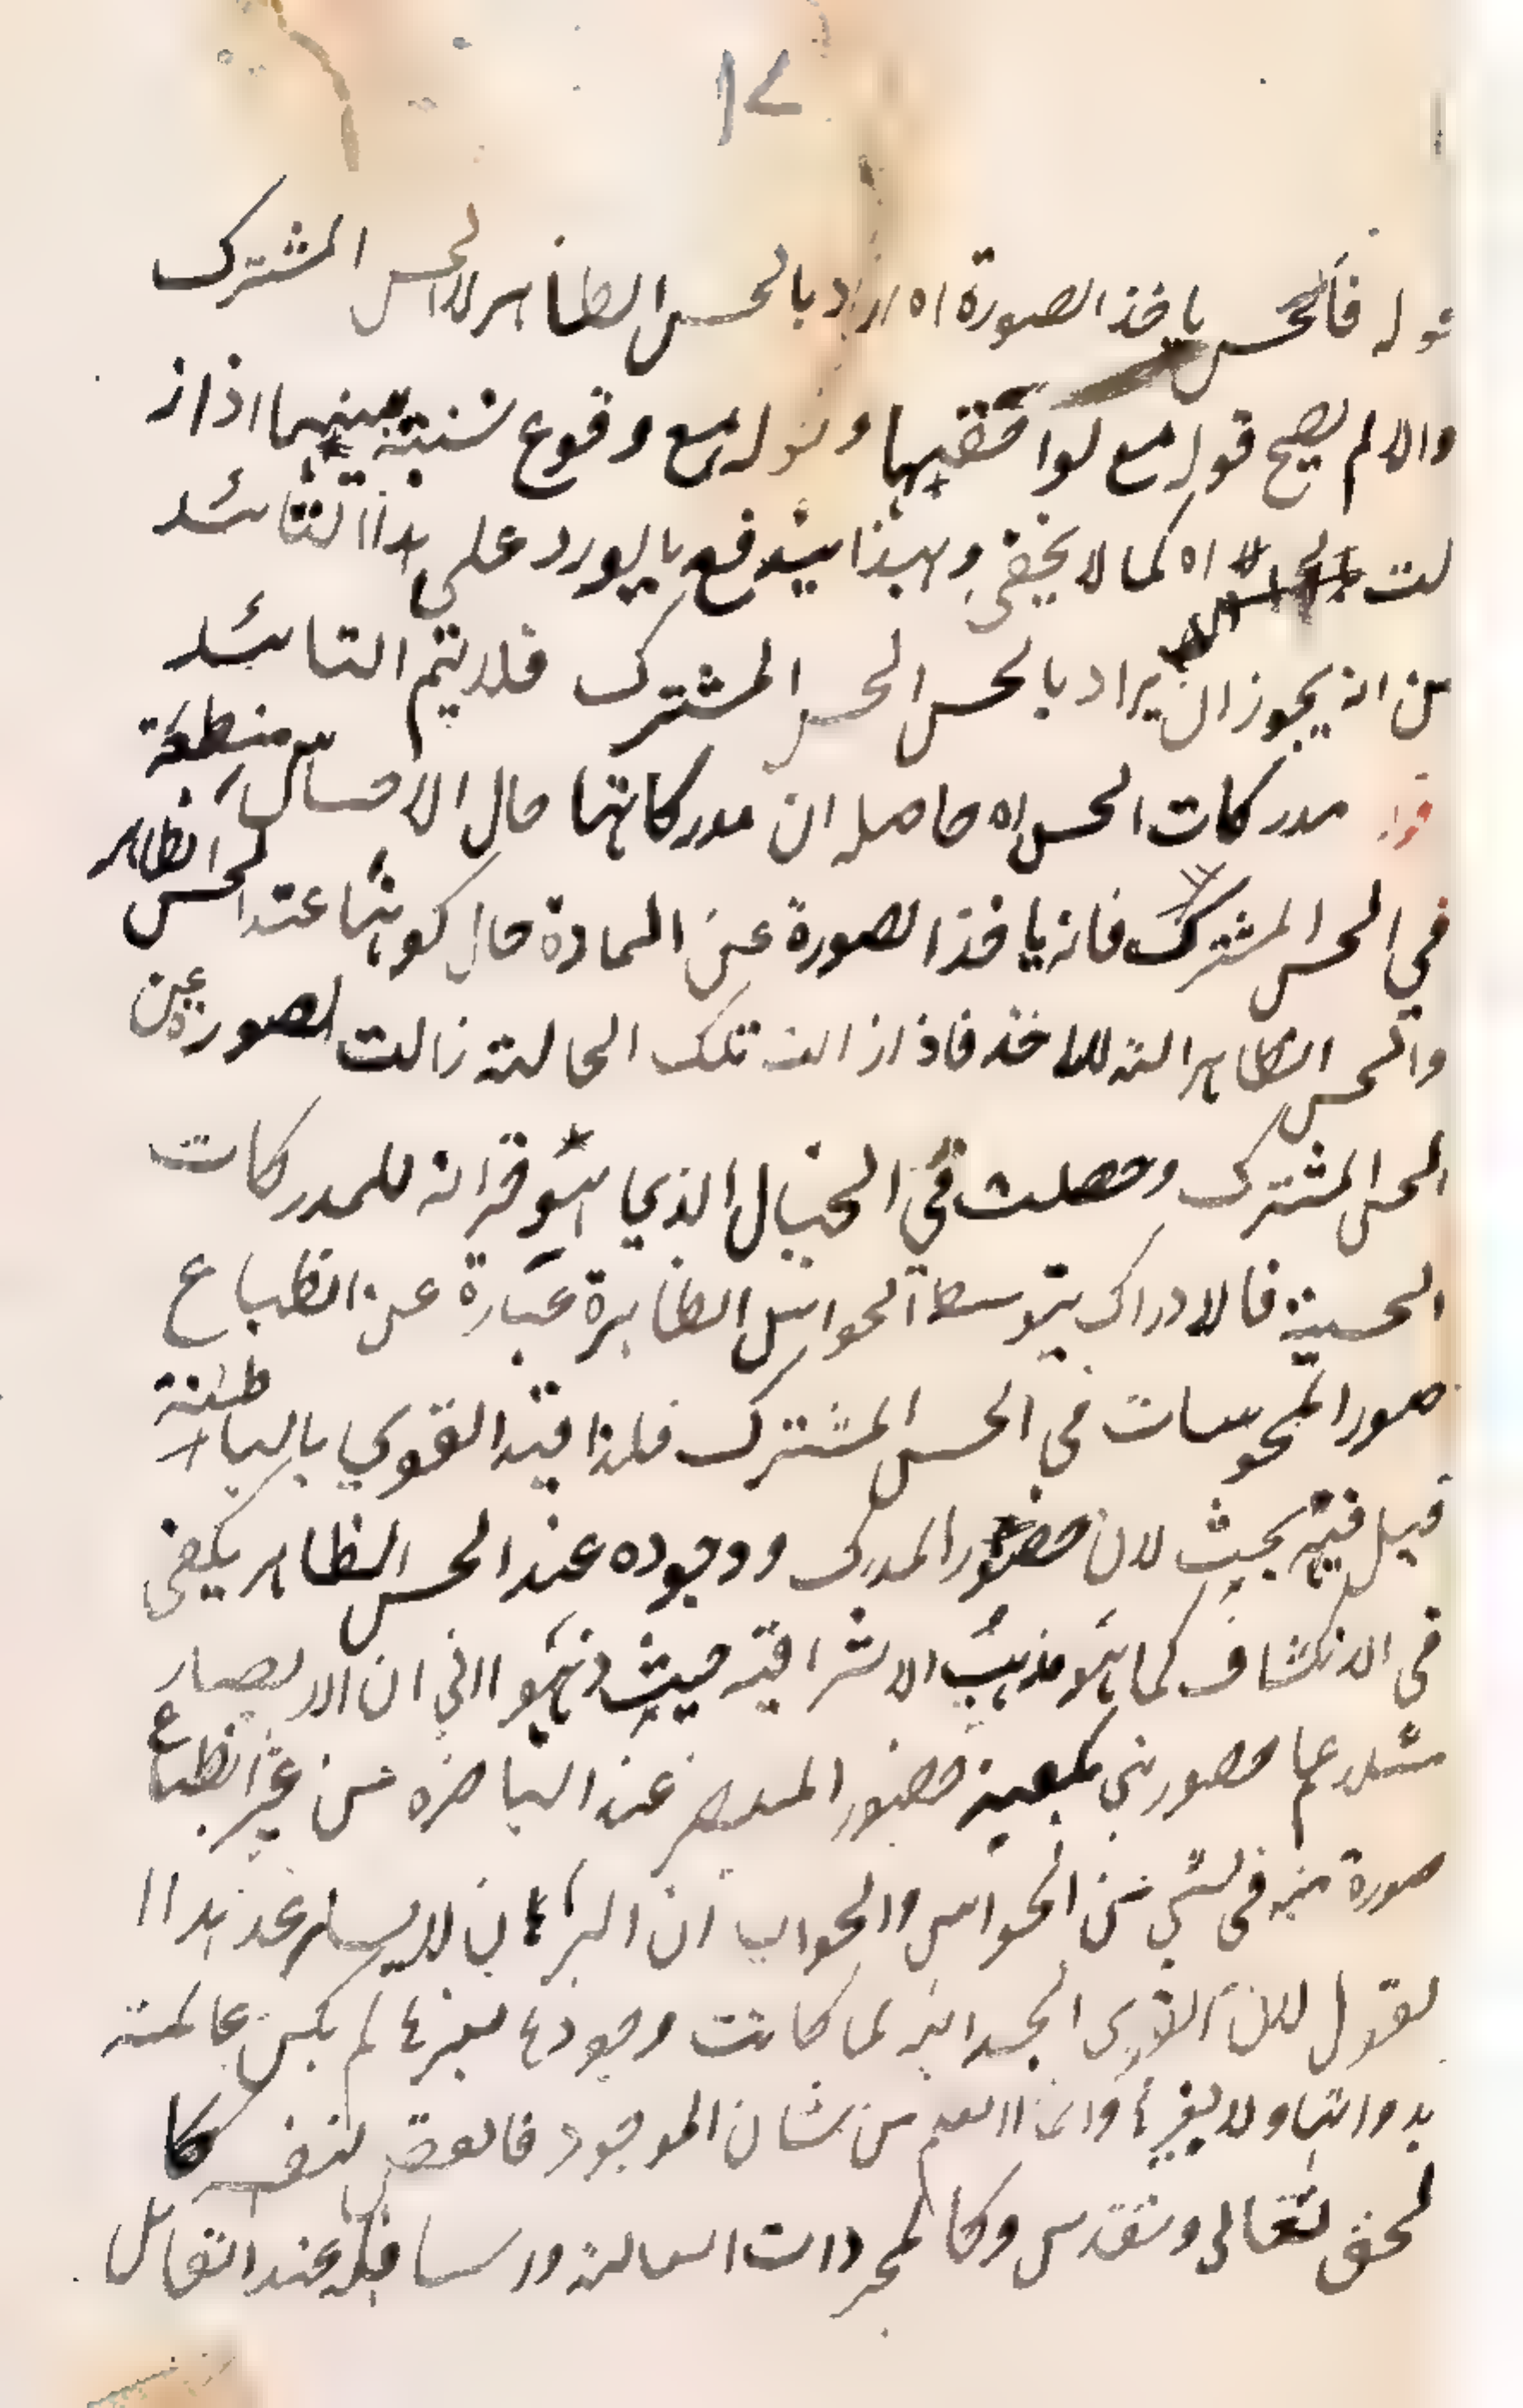 ١٧
قوله فالحس ياخذ الصورة اه اراد بالحس الظاهر لا الحس المشترك
والا لم يصح قوله مع لواحقها وقوله مع وقوع نسبة بينهما اذا ز
لت اه كما لا يخفى وبهذا يندفع ما يورد على هذا التائيد
من انه يجوز ان يراد بالحس الحس المشترك فلا يتم التائيد
قوله مدركات الحس اه حاصله ان مدركاتها حال الاحساس منطبعة
في الحس المشترك فانه ياخذ الصورة عن المادة حال كونها عند الحس الظاهر
والحس الظاهر الة للاخذ فاذا زالت تلك الحالة زالت الصورة عن
الحس المشترك وحصلت في الخيال الذي هو خزانة للمدركات
الحسية فالادراك بتوسط الحواس الظاهرة عبارة عن انطباع
صور المحسوسات في الحس المشترك فلذا قيد القوي بالباطنة
قيل فيه بحث لان حضور المدرك ووجوده عند الحس الظاهر يكفي
في الانكشاف كما هو مذهب الاشراقية حيث ذهبوا الى ان الابصار
مثلا علم حضوري بمعية حضور المبصر عند الباصرة من غير انطباع
صورة منه في شي من الحواس والجواب ان البرهان لا يساعد هذا ا
لقول لان القوى الجسدانية لما كانت وجودها لغيرها لم يكن عالمة
بذواتها ولا بغيرها وانما العلم من شان الموجود بنفسه كا
لحق تعالى وتقدس وكالمجردات العالية والسافلة عند القائل